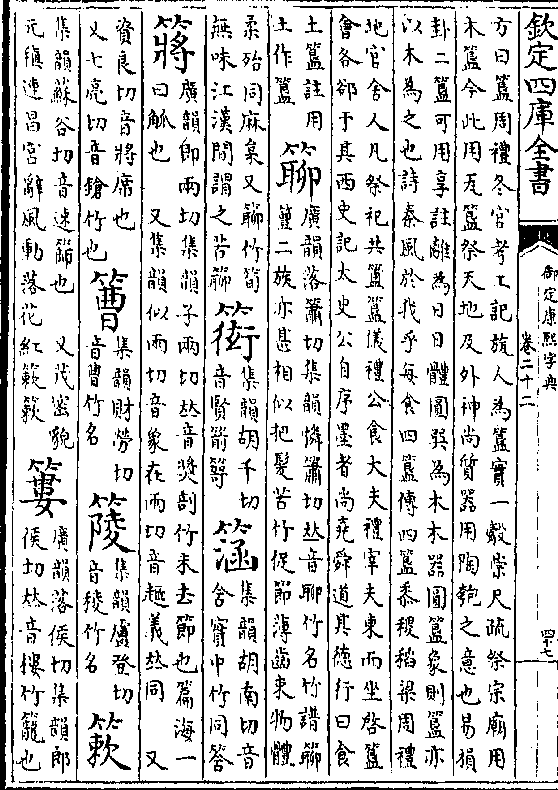 欽定四庫全書
御定康熙字典
卷二十二
四十七
方曰簋周禮冬官考工記旊人為簋實一觳崇尺疏祭宗廟用
木簋今此用瓦簋祭天地及外神尚質器用陶匏之意也易損
卦二簋可用享註離為日日體圓巽為木木器圓簋象則簋亦
以木為之也詩秦風於我乎每食四簋傳四簋黍稷稻梁周禮
地官舍人凡祭祀共簠簋儀禮公食大夫禮宰夫東面坐啓簋
會各郤于其西史記太史公自序墨者尚堯舜道其德行曰食
土簋註用
土作簋
廣韻落蕭切集韻憐蕭切𠀤音聊竹名竹譜
二族亦甚相似把髮苦竹促節薄齒束物體
柔殆同麻枲又 竹筍
無味江漢間謂之苦
集韻胡千切
音賢箭
集韻胡南切音
含實中竹同
䉃
廣韻即兩切集韻子兩切𠀤音奬剖竹未去節也篇海一
曰觚也 又集韻似兩切音象在兩切音 義𠀤同 又
資良切音將席也
又七亮切音鎗竹也
䉕
集韻財勞切
音曹竹名
集韻盧登切
音稜竹名
簌
集韻蘇谷切音速篩也 又茂密貌
元稹連昌宮辭風動落花紅簌簌
簍
廣韻落侯切集韻郎
侯切𠀤音樓竹籠也